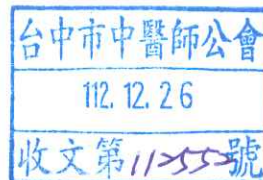 台中市中醫師公會
112.12.26
收文第112552號